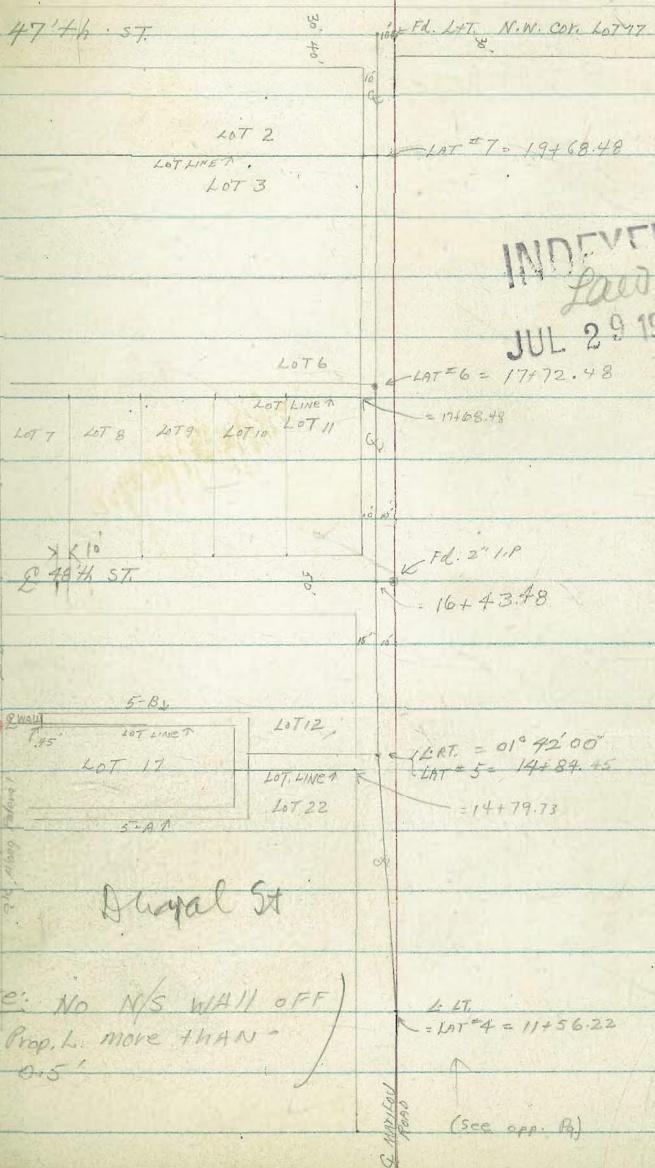 47'th. ST.
30' 40'
10'
Fd. L&T. N.W. COR. LOT 77
30'
10'
LOT 2
LOT LINE ↑
LOT 3
LAT #7 = 19+68.48
INDEXED
JUL 29 19
LOT 6
LAT #6 = 17+72.48
LOT LINE ↑
= 17+68.48
LOT 7 LOT 8 LOT 9 LOT 10 LOT 11
10' 10'
10'
℄ 48'th ST.
50'
Fd. 2" I.P
= 16+43.48
15' 10'
5-B↓
℄ WALL
.75'
LOT LINE ↑
LOT 12
LOT 17
∠ RT. = 01° 42' 00"
LAT #5 = 14+84.45
LOT LINE ↑
LOT 22
= 14+79.73
5-A ↑
St
e: NO N/S WALL OFF
Prop. L. more than
0.5'
∠ LT.
= LAT #4 = 11+56.22
℄ ROAD
(See opp. Pg)